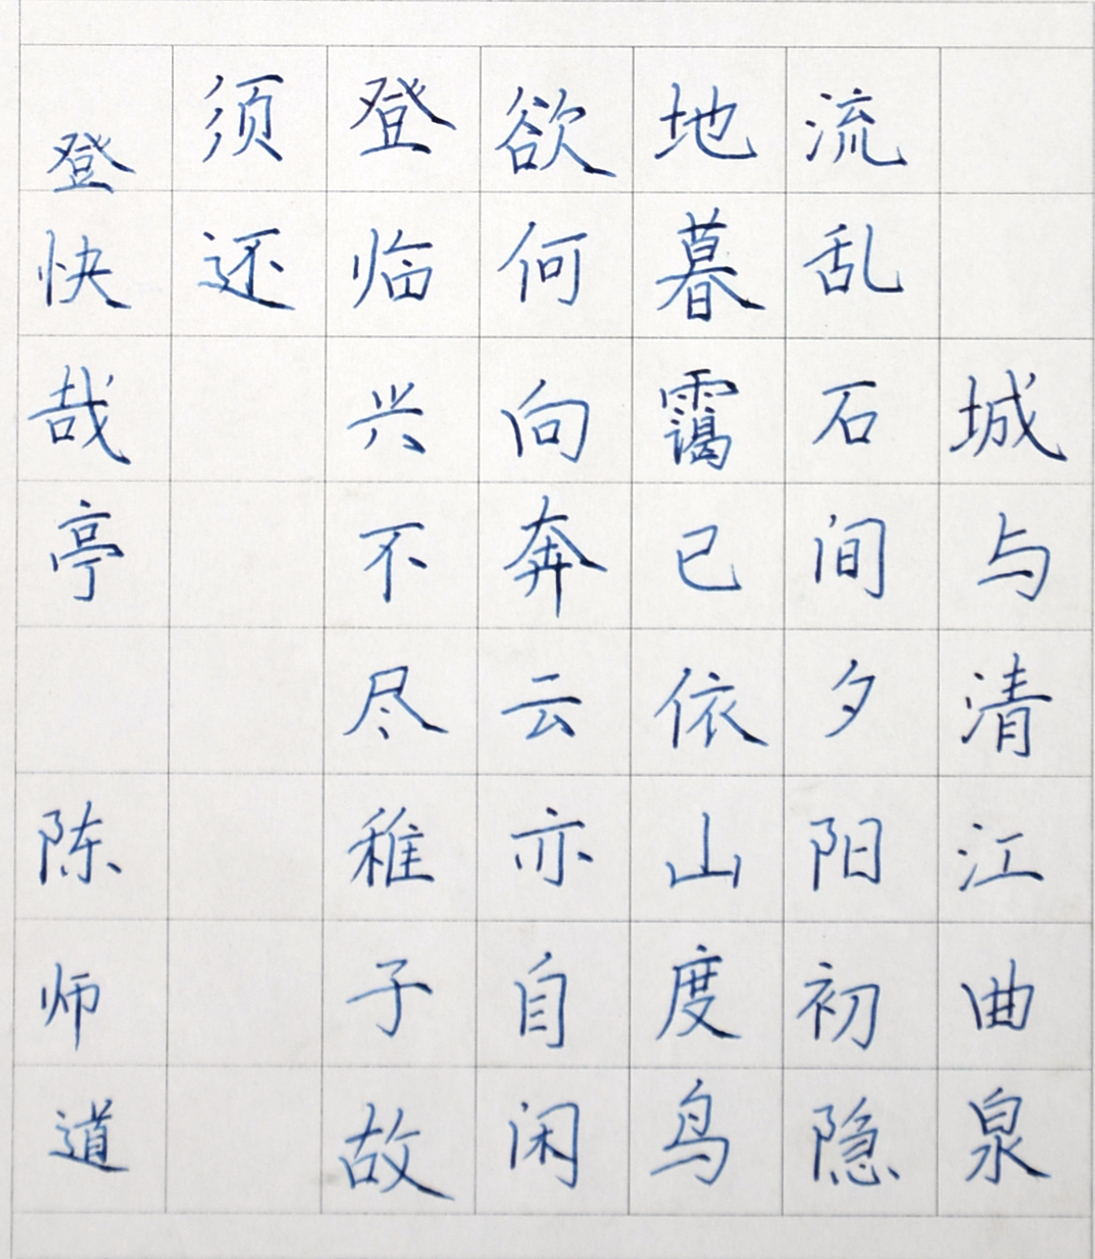 城与清江曲泉
流乱石间夕阳初隐
地暮霭已依山度鸟
欲何向奔云亦自闲
登临兴不尽稚子故
须还
登快哉亭 陈师道